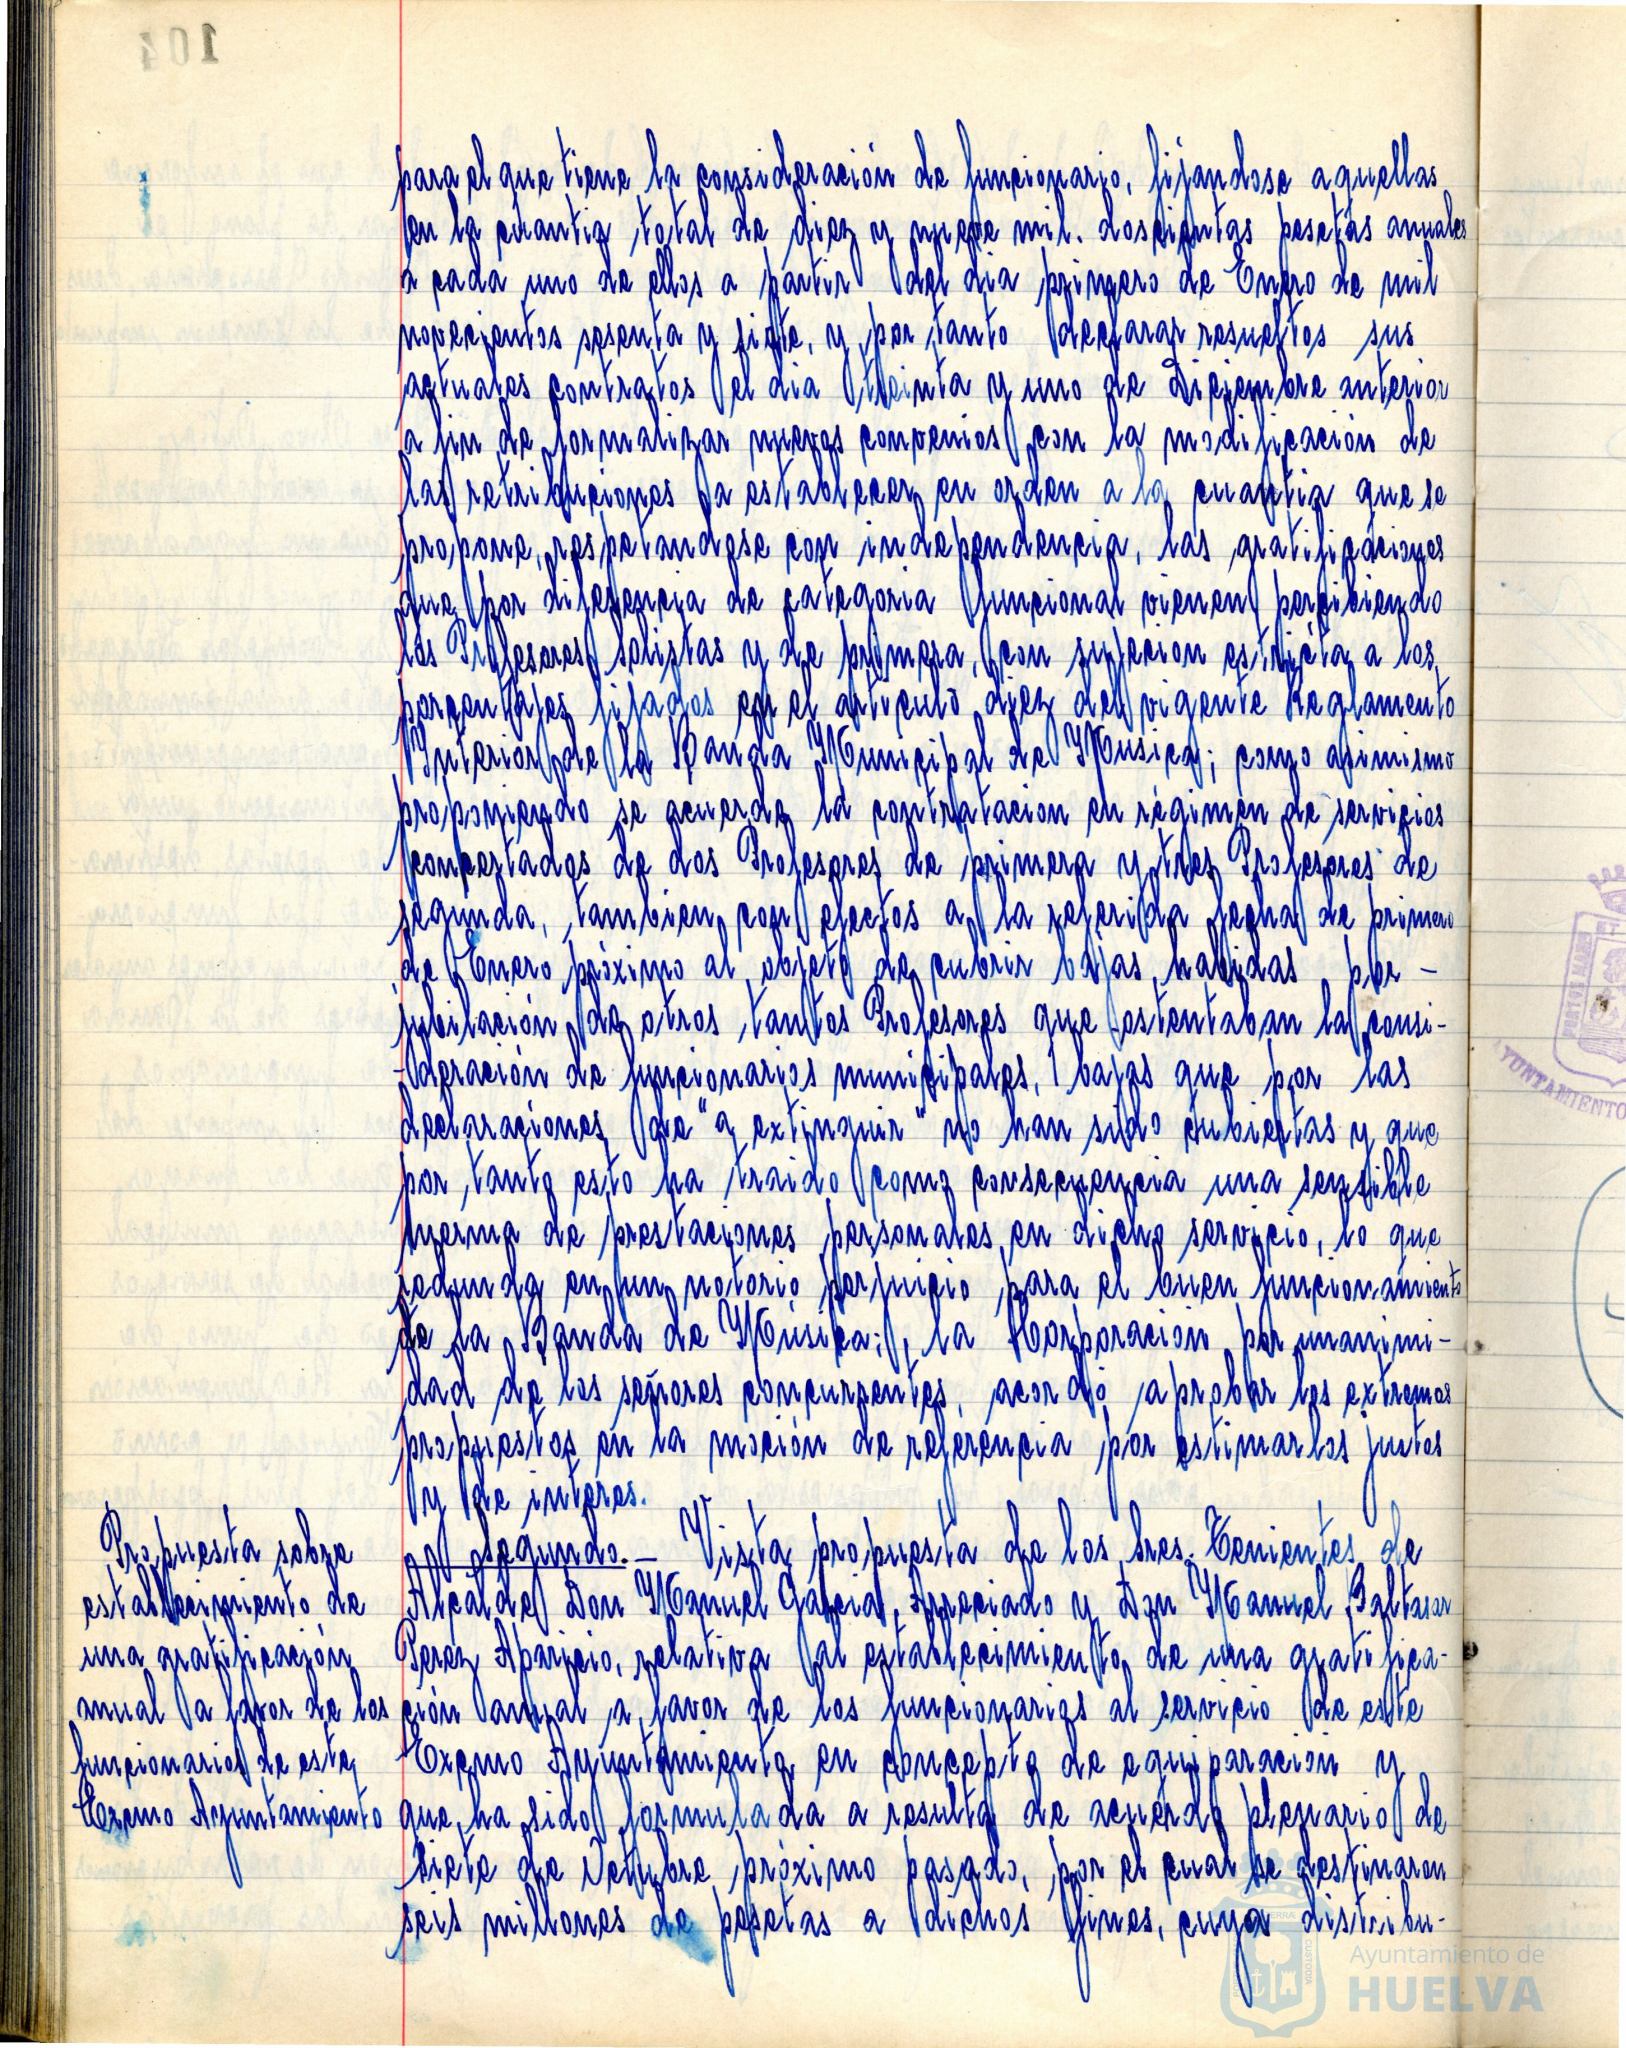 para el que tiene la consideración de funcionario, fijandose aquellas
en la cuantia total de diez y nueve mil doscientas pesetas anuales
a cada uno de ellos a partir del dia primero de Enero de mil
novecientos sesenta y siete, y por tanto declarar resueltos sus
actuales contratos el dia treinta y uno de Diciembre anterior
a fin de formalizar nuevos convenios con la modificación de
las retribuciones a establecer en orden a la cuantia que se
propone, respetandose con independencia, las gratificaciones
que por diferencia de categoria funcional vienen percibiendo
los Profesores solistas y de primera, con sujecion estricta a los
porcentajes fijados en el articulo diez del vigente Reglamento
Interior de la Banda Municipal de Musica; como asimismo
proponiendo se acuerde la contratacion en régimen de servicios
concertados de dos Profesores de primera y tres Profesores de
segunda, tambien con efectos a la referida fecha de primero
de Enero próximo al objeto de cubrir bajas habidas por -
jubilación de otros tantos Profesores que ostentaban la consi-
deración de funcionarios municipales, bajas que por las
declaraciones de "a extinguir" no han sido cubiertas y que
por tanto esto ha traido como consecuencia una sensible
merma de prestaciones personales en dicho servicio, lo que
redunda en un notorio perjuicio para el buen funcionamiento
de la Banda de Música; la Corporación por unanimi-
dad de los señores concurrentes, acordó aprobar los extremos
propuestos en la moción de referencia por estimarlos justos
y de interes.
Propuesta sobre
establecimiento de
una gratificación
anual a favor de los
funcionarios de este
Excmo Ayuntamiento
Segundo.- Vista propuesta de los Sres. Tenientes de
Alcalde Don Manuel Garcia Arreciado y Don Manuel Baltasar
Perez Aparicio, relativa al establecimiento de una gratifica-
ción anual a favor de los funcionarios al servicio de este
Excmo Ayuntamiento en concepto de equiparación y
que ha sido formulada a resulta de acuerdo plenario de
siete de Octubre próximo pasado, por el cual se destinaron
seis millones de pesetas a dichos fines, cuya distribu-
AYUNTAMIENTO
Ayuntamiento de
HUELVA